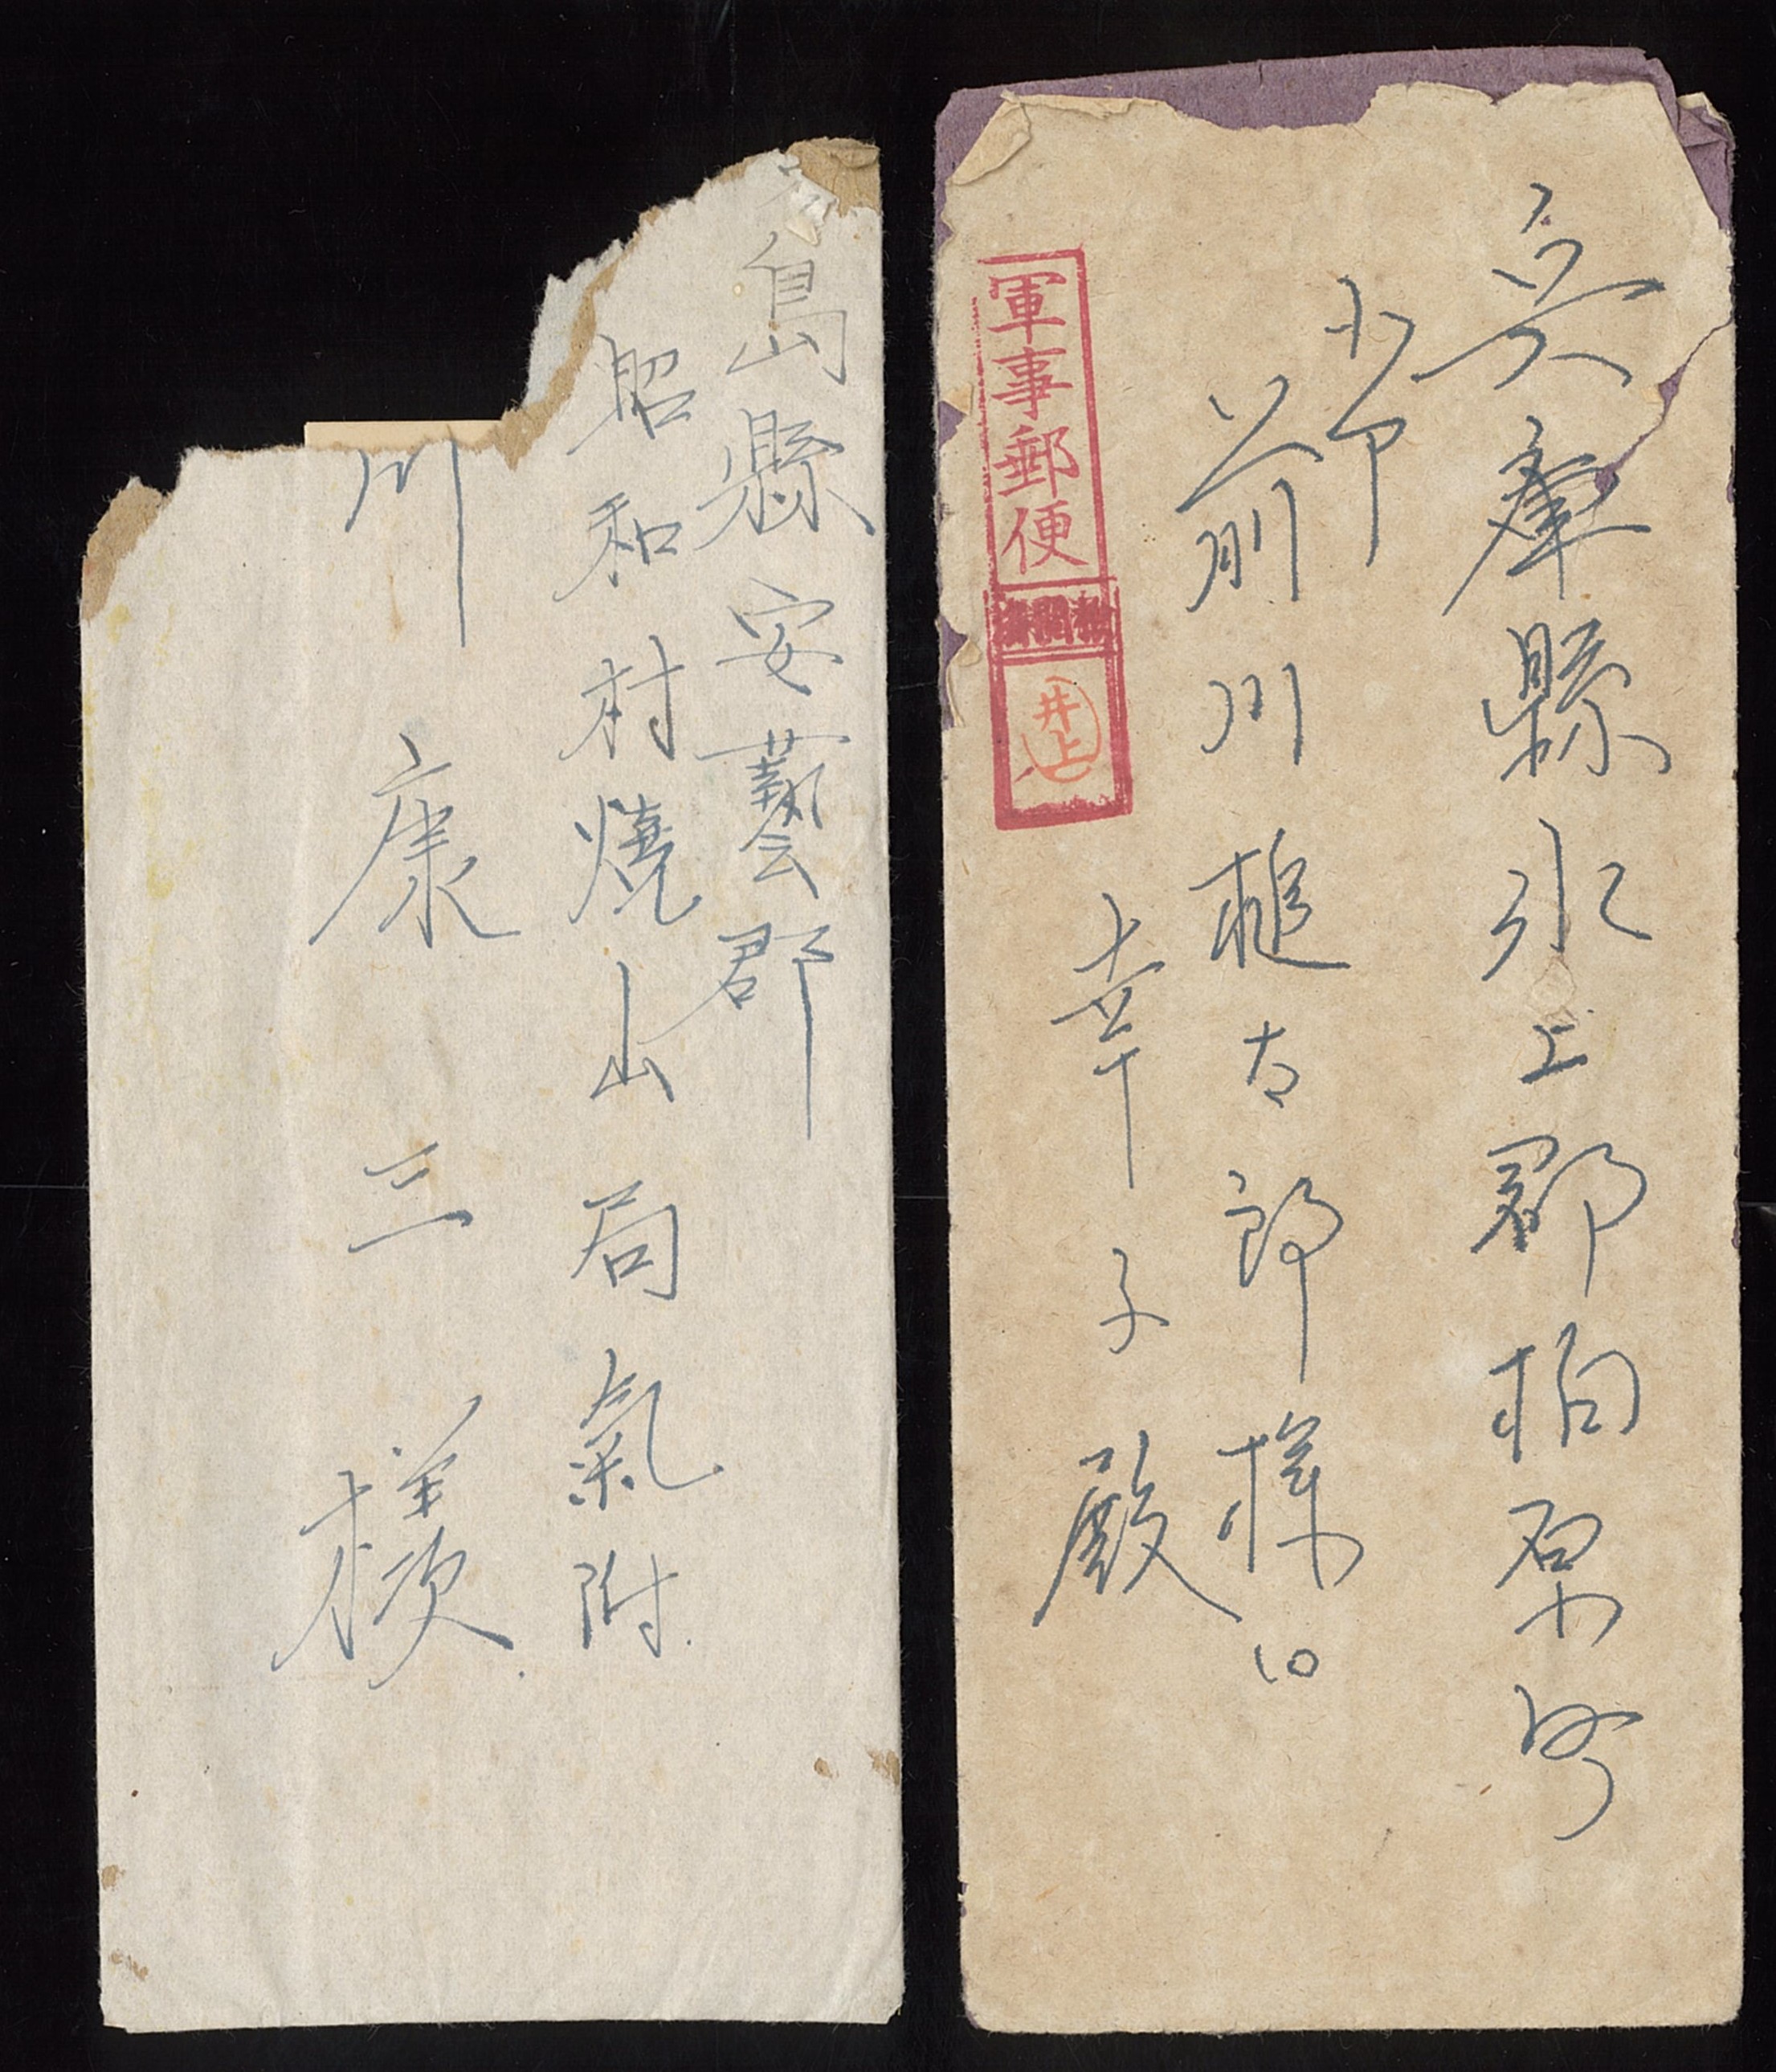 兵庫縣氷上郡柏原町
前川槌郎様
幸子殿
軍事郵便
檢閲濟
井上
島縣安藝郡
昭和村燒山局氣附
川康三様